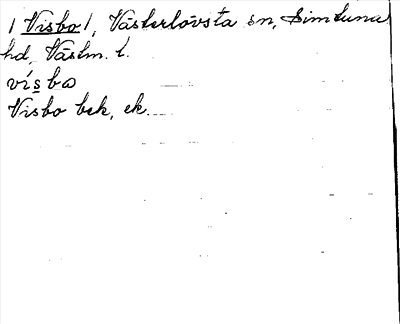 / Visbo /, Västerlövsta sn, Simtuna
hd, Västm. l.
vísbω
Visbo bek, ek.